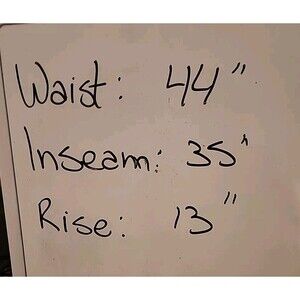 Waist: 44"
Inseam: 35"
Rise: 13"